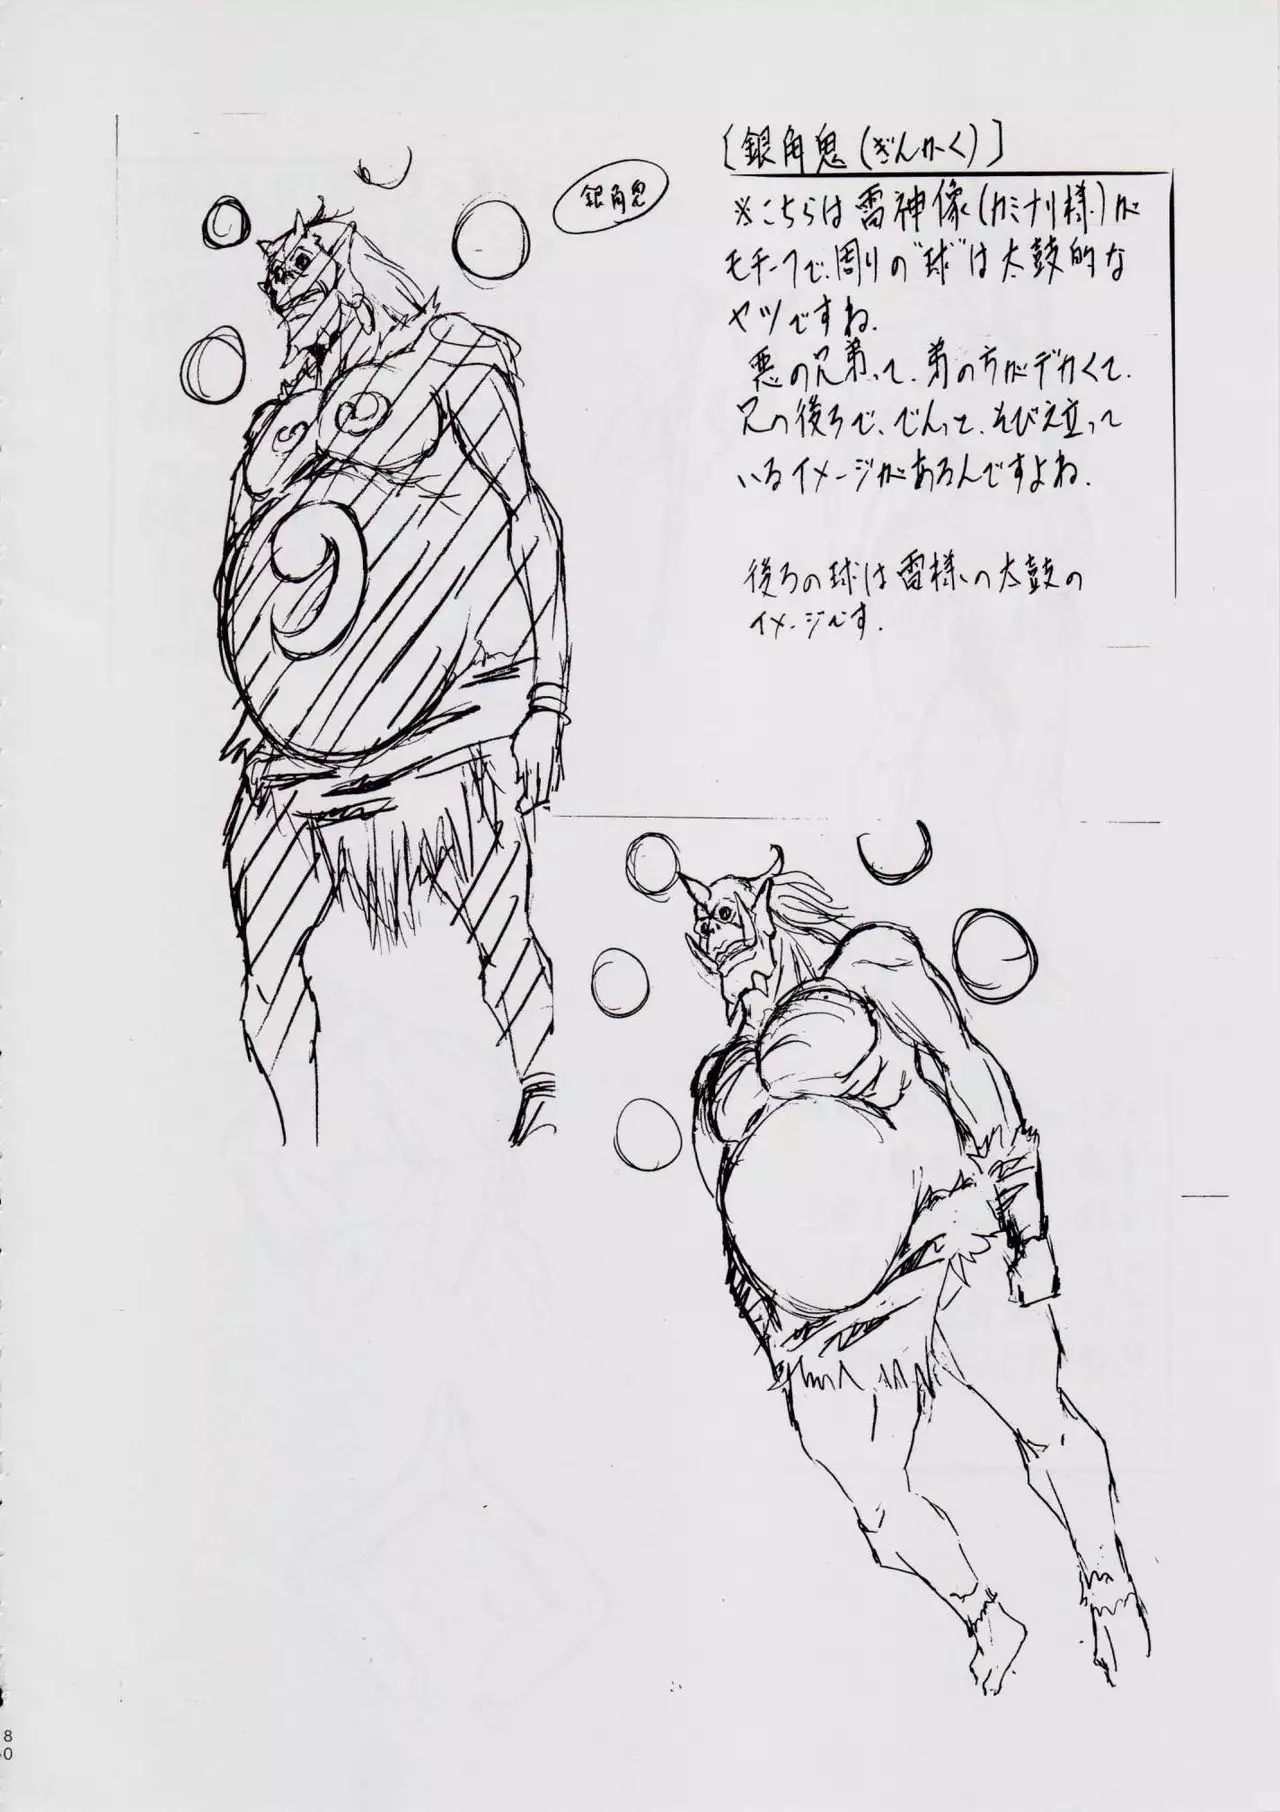 [銀角鬼(ぎんかく)]
銀角鬼
※こちらは雷神像(カミナリ様)が
モチーフで、周りの"球"は太鼓的な
ヤツですね.
悪の兄弟って、弟の方がデカくて、
兄の後ろで、でんっと、そびえ立って
いるイメージがあるんですよね.
後ろの球は雷様の太鼓の
イメージです.